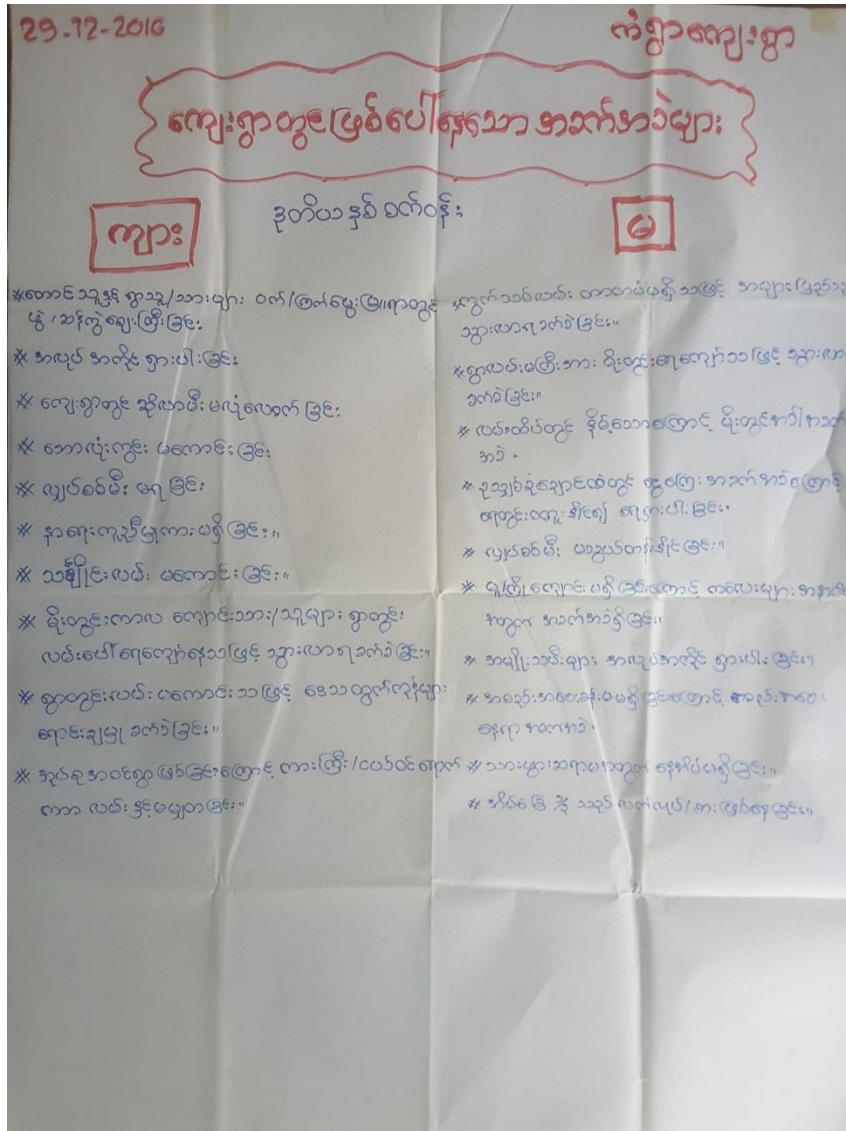 29-12-2016
ကံရွာကျေးရွာ
ကျေးရွာတွင်ဖြစ်ပေါ်နေသော အခက်အခဲများ
ကျား
ဒုတိယနှစ် စက်ဝန်း
မ
*တောင်သူနှင့် ရွာသူ/သားများ ဝက်/ကြက်မွေးမြူရာတွင်
ဖွဲ/ဆန်ကွဲဈေးကြီးခြင်း
* အလုပ် အကိုင် ရှားပါးခြင်း
* ကျေးရွာတွင် ဆိုလာမီးမလုံလောက်ခြင်း
* ဘောလုံးကွင်း မကောင်းခြင်း
* လျှပ်စစ်မီး မရခြင်း
* နာရေးကူညီမှုကားမရှိခြင်း။
* သင်္ချိုင်းလမ်း မကောင်းခြင်း။
* မိုးတွင်းကာလ ကျောင်းသား/သူများ ရွာတွင်း
လမ်းပေါ်ရေကျော်နေသဖြင့် သွားလာရခက်ခဲခြင်း။
* ရွာတွင်းလမ်း မကောင်းသဖြင့် ဒေသထွက်ကုန်များ
ရောင်းချမှု ခက်ခဲခြင်း။
* အုပ်စုအဝင်ရွာဖြစ်ခြင်းကြောင့် ကားကြီး/ငယ်ဝင်ရောက်
ကာ လမ်းနှင့်မမျှတခြင်း။
*ကွက်သစ်လမ်း တာတမံမရှိသဖြင့် အများပြည်သူ
သွားလာရခက်ခဲခြင်း။
*ရွာလမ်းမကြီးအား မိုးတွင်းရေကျော်သဖြင့် သွားလာ
ခက်ခဲခြင်း။
* လမ်းထိပ်တွင် နိမ့်သောကြောင့် မိုးတွင်အခါ အခက်
အခဲ။
* ငွေကြေးအခက်အခဲကြောင့်
ရေတွင်းမတူးနိုင်၍ ရေရှားပါးခြင်း။
* လျှပ်စစ်မီး မသွယ်တန်းနိုင်ခြင်း။
* မူ/ကြိုကျောင်းမရှိခြင်းကြောင့် ကလေးများ
အတွက် အခက်အခဲရှိခြင်း။
* အမျိုးသမီးများ အလုပ်အကိုင် ရှားပါးခြင်း။
* အစည်းအဝေးခန်းမမရှိခြင်းကြောင့် အစည်းအဝေး
နေရာ အခက်အခဲ။
* သားဖွားဆရာမအတွက် နေအိမ်မရှိခြင်း။
* အိမ်ခြေ သည် လက်လုပ်/စားဖြစ်နေခြင်း။